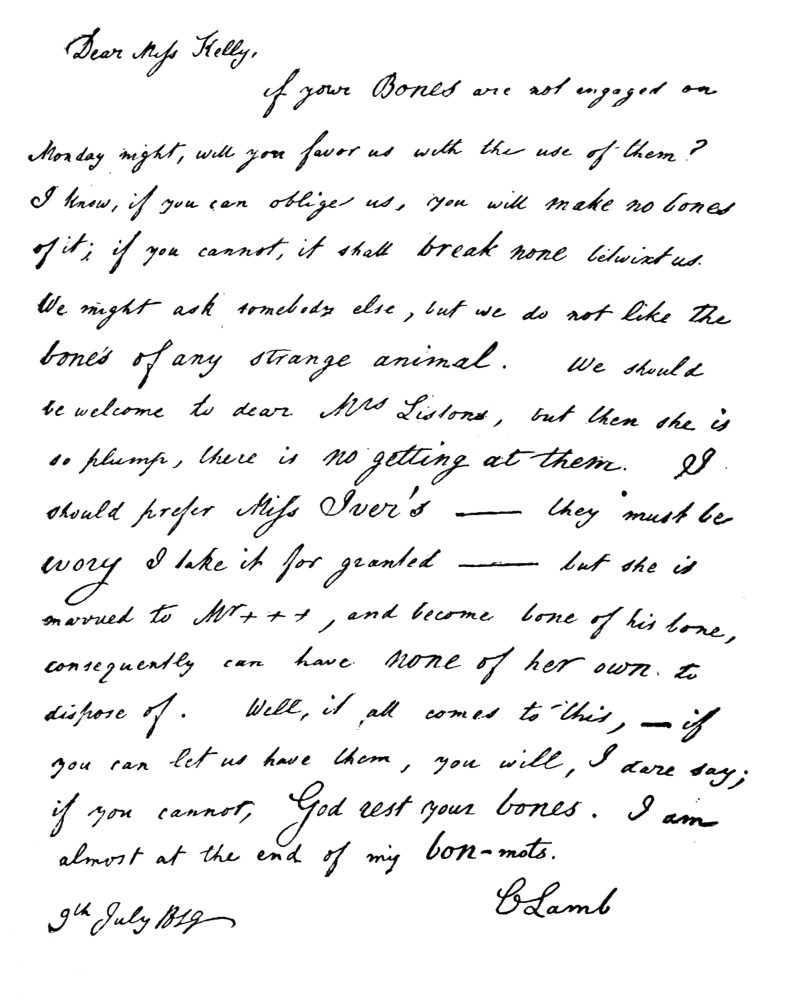 Dear Miss Kelly,
if your Bones are not engaged on
Monday night, will you favor us with the use of them?
I know, if you can oblige us, you will make no bones
of it; if you cannot, it shall break none betwixt us.
We might ask somebody else, but we do not like the
bones of any strange animal. We should
be welcome to dear Mrs Listons, but then she is
so plump, there is no getting at them. I
should prefer Miss Iver's — they must be
ivory I take it for granted — but she is
married to Mr + + +, and become bone of his bone,
consequently can have none of her own to
dispose of. Well, it all comes to this, — if
you can let us have them, you will, I dare say;
if you cannot, God rest your bones. I am
almost at the end of my bon-mots.
C Lamb
9th July 1819